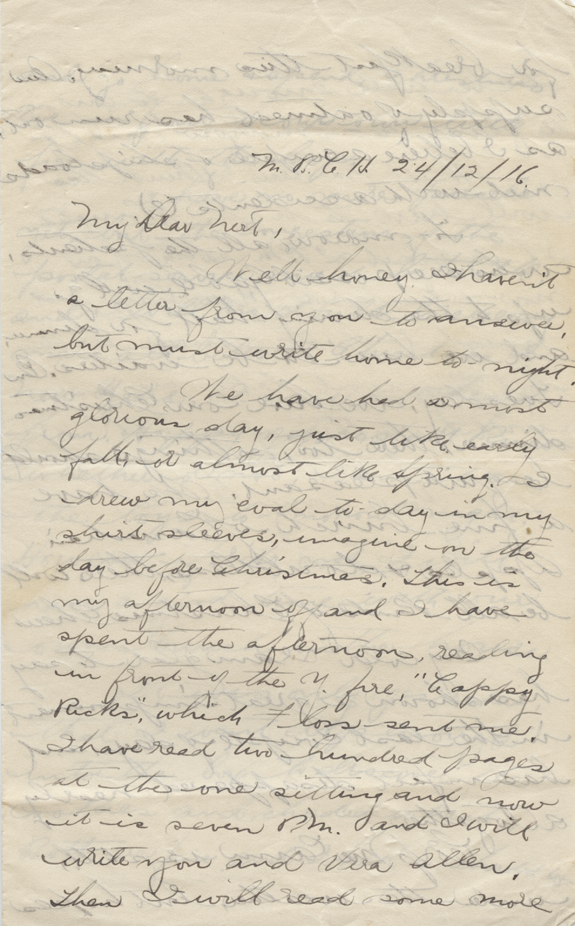 M. B. C. H. 24/12/16.
My Dear Nert,
Well honey. I haven't
a letter from you to answer,
but must write home to-night.
We have had a most
glorious day, just like early
fall, or almost like spring. I
drew my coal to-day in my
shirt sleeves, imagine on the
day before Christmas. This is
my afternoon off and I have
spent the afternoon, reading
in front of the Y. fire, "Cappy
Ricks", which Floss sent me.
I have read two hundred pages
at the one sitting and now
it is seven P.M. and I will
write you and Vera Allen.
Then I will read some more